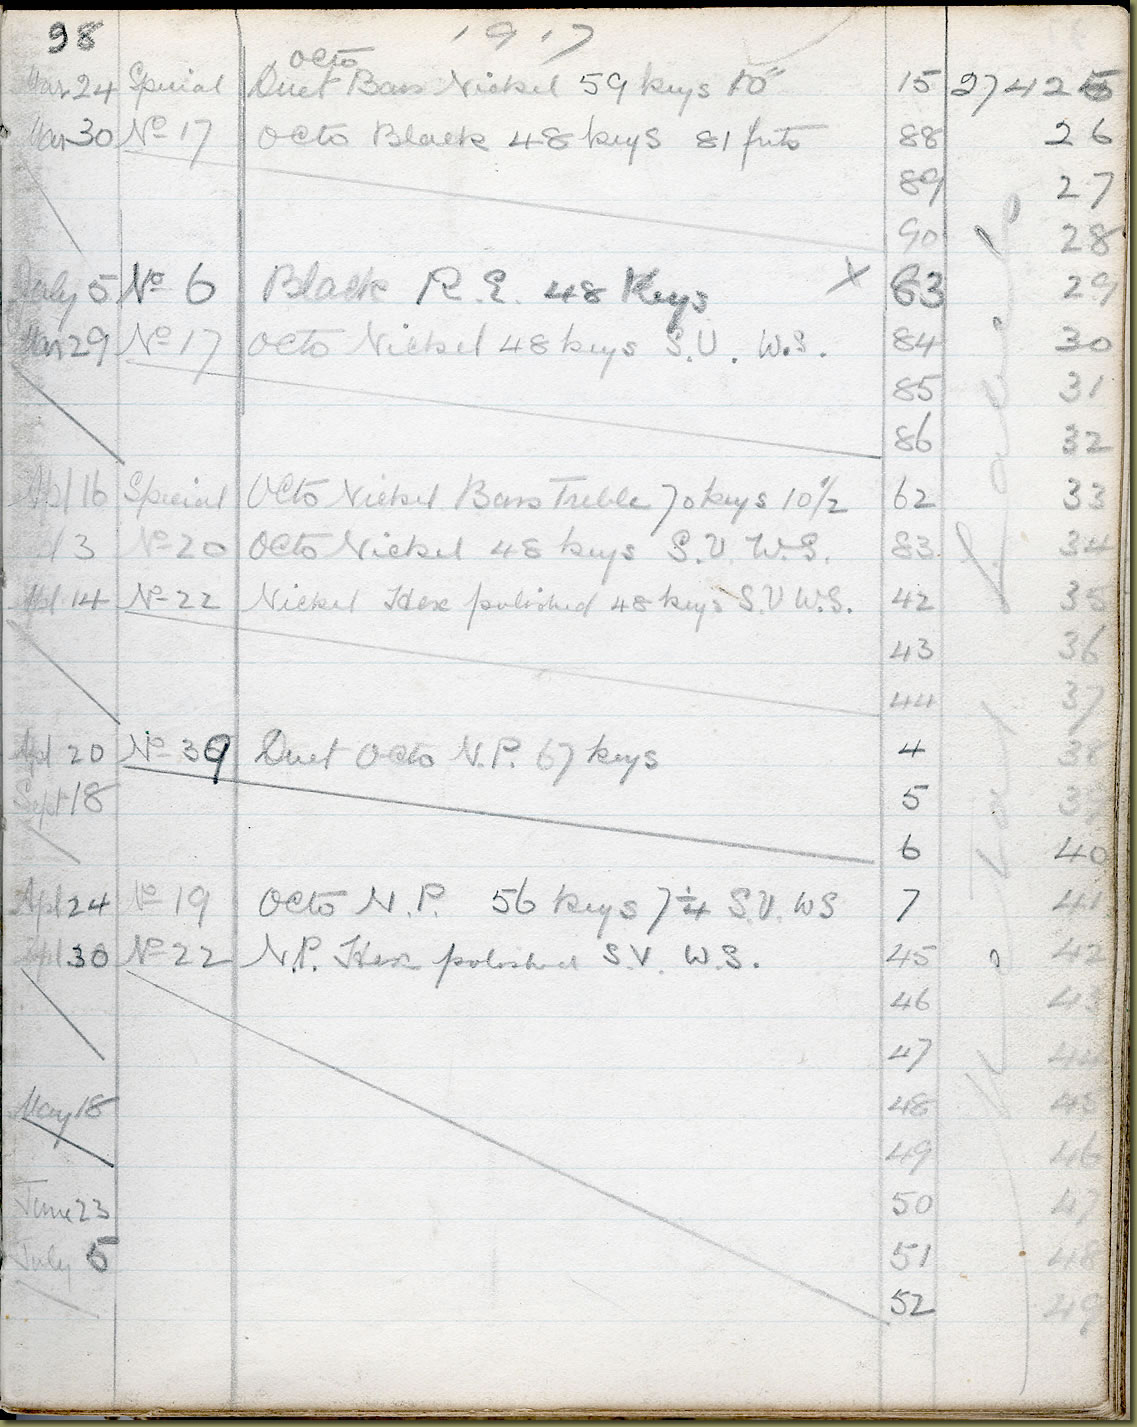 98 1917
Octo
Mar 24 Special Duet Bass Nickel 59 keys 10" 15 27425
Mar 30 No 17 Octo Black 48 keys 81 frts 88 26
89 27
90 28
July 5 No 6 Black R.E. 48 Keys X 63 29
Mar 29 No 17 Octo Nickel 48 keys S.V. W.S. 84 30
85 31
86 32
Apl 16 Special Octo Nickel Bass Treble 70 keys 10 1/2 62 33
3 No 20 Octo Nickel 48 keys S.V. W.S. 83 34
Apl 14 No 22 Nickel Hex polished 48 keys S.V W.S. 42 35
43 36
44 37
Apl 20 No 39 Duet Octo N.P. 67 keys 4 38
Sept 18 5 39
6 40
Apl 24 No 19 Octo N.P. 56 keys 7 1/4 S.V. WS 7 41
Apl 30 No 22 N.P. Hex polished S.V. W.S. 45 42
46 43
47 44
May 18 48 45
49 46
June 23 50 47
July 5 51 48
52 49